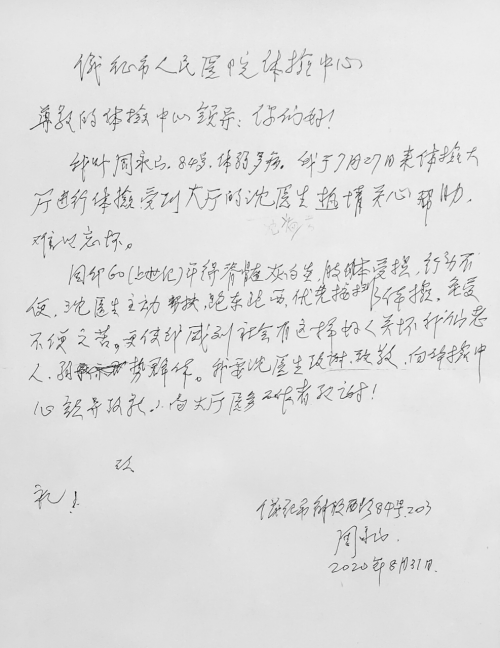 仪征市人民医院体检中心
尊敬的体检中心领导：你们好！
我叫周永山，84岁，体弱多病。我于7月27日来体检大
厅进行体检受到大厅的沈医生热情关心帮助，
难以忘怀。
因60(上世纪)年得脊髓灰白炎，肢体受损，行动不
便，沈医生主动跑东跑西，优先体检，免受
不便之苦。更使我感到社会有这样的人关怀我们老
人，弱势群体。我要沈医生致谢、致敬，向体检中
心领导致谢。向大厅医务工作者致谢！
致
礼！
仪征市84号203
周永山
2020年8月31日.